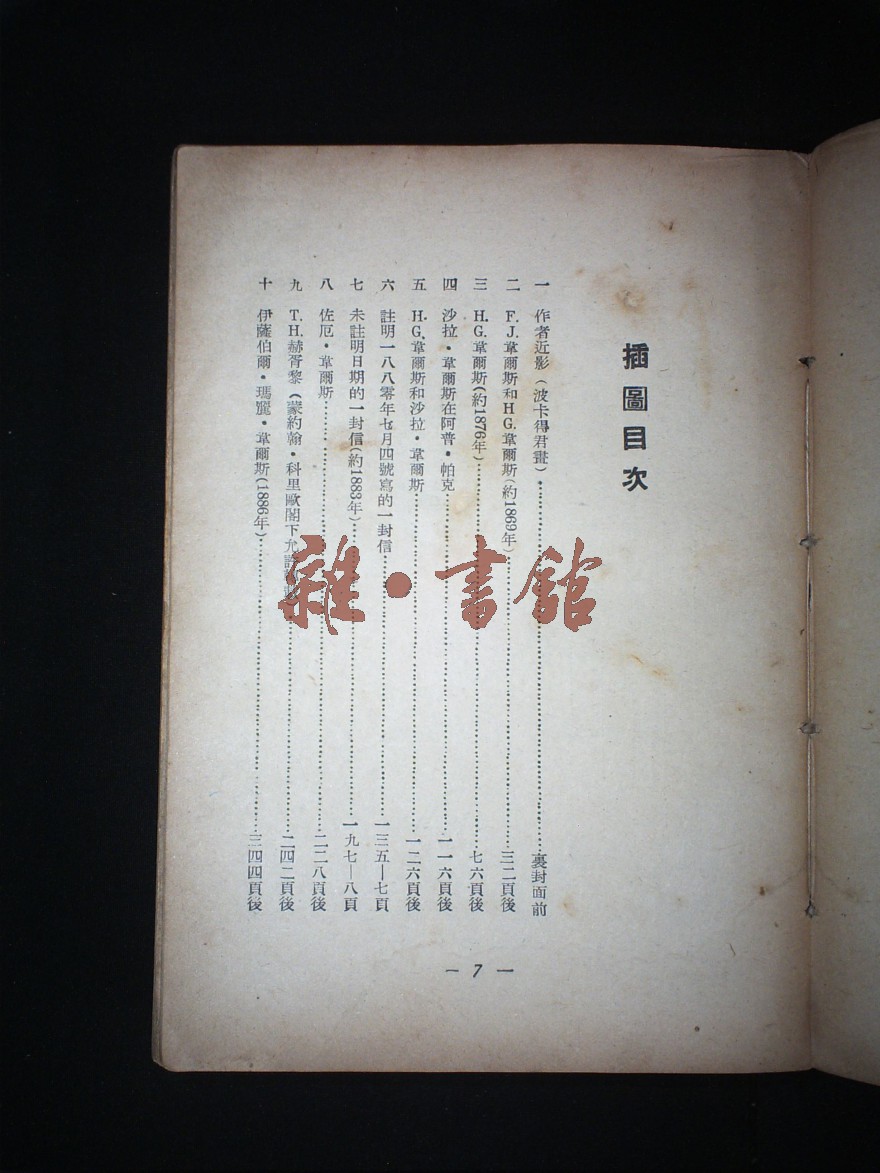 插圖目次
一 作者近影(波卡得君畫)……裏封面前
二 F.J.韋爾斯和H.G.韋爾斯(約1869年)……三二頁後
三 H.G.韋爾斯(約1876年)……七六頁後
四 沙拉·韋爾斯在阿普·帕克……一一六頁後
五 H.G.韋爾斯和沙拉·韋爾斯……一二六頁後
六 註明一八八零年七月四號寫的一封信……一三五—七頁
七 未註明日期的一封信(約1883年)……一九七—八頁
八 佐厄·韋爾斯……二二八頁後
九 T.H.赫胥黎(蒙約翰·科里歐閣下允許……二四二頁後
十 伊薩伯爾·瑪麗·韋爾斯(1886年)……三四四頁後
— 7 —
雜·書館